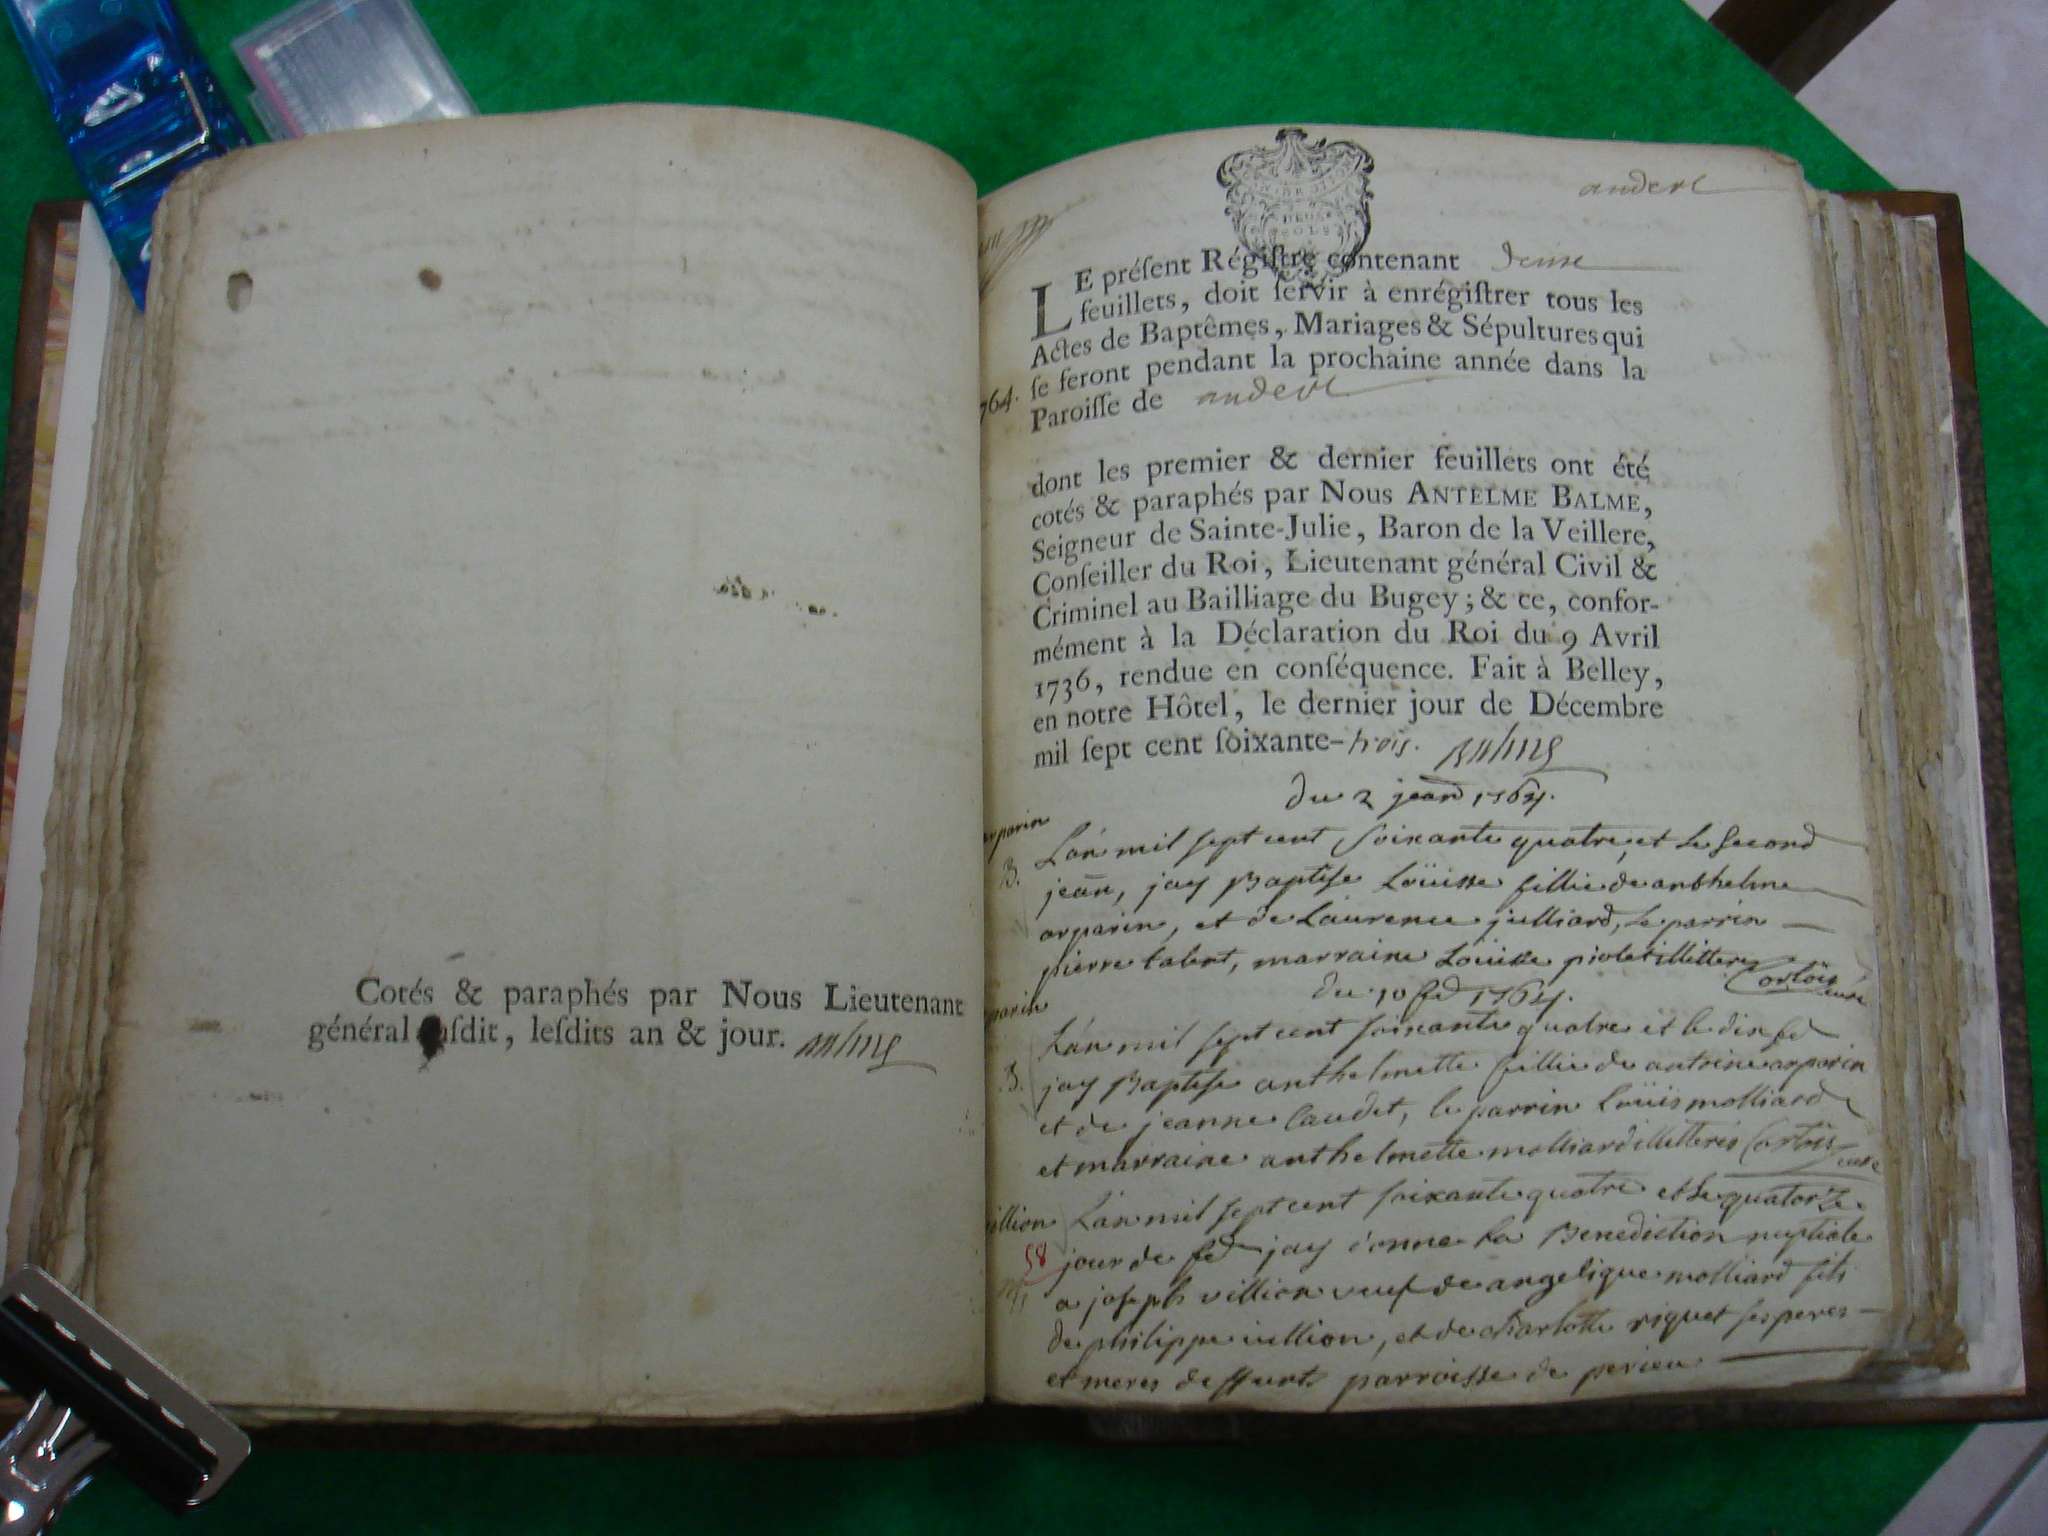 Cotés & paraphés par Nous Lieutenant
général susdit, lesdits an & jour. Balme
andert
DEUX
SOLS
LE présent Régistre contenant
feuillets, doit servir à enrégistrer tous les
Actes de Baptêmes, Mariages & Sépultures qui
se feront pendant la prochaine année dans la
764. Paroisse de andert
dont les premier & dernier feuillets ont été
cotés & paraphés par Nous ANTELME BALME,
Seigneur de Sainte-Julie, Baron de la Veillere,
Conseiller du Roi, Lieutenant général Civil &
Criminel au Bailliage du Bugey; & ce, confor-
mément à la Déclaration du Roi du 9 Avril
1736, rendue en conséquence. Fait à Belley,
en notre Hôtel, le dernier jour de Décembre
mil sept cent soixante-trois. Balme
du 2 jeanr 1764.
arparin
L'an mil sept cent soixante quatre, et le second
B. jean, jay Baptise Loüisse fillie de anthelme
arparin, et de Laurence julliard, le parrin
pierre talent, marraine Loüisse piolet illitteres
Cortois curé
du 10 fed 1764.
parin
L'an mil sept cent soixante quatre et le dix fed
B. jay Baptise anthelmette fillie de antoine arparin
et de jeanne Caudet, le parrin Loüis molliard
et marraine anthelmette molliard illitterés Cortois curé
illion L'an mil sept cent soixante quatre et le quatorze
58 jour de fed jay donne la Benediction nuptiale
a joseph villion veuf de angelique molliard fils
de philippe villion, et de charlotte riquet ses peres
et meres deffunts parroisse de perieu